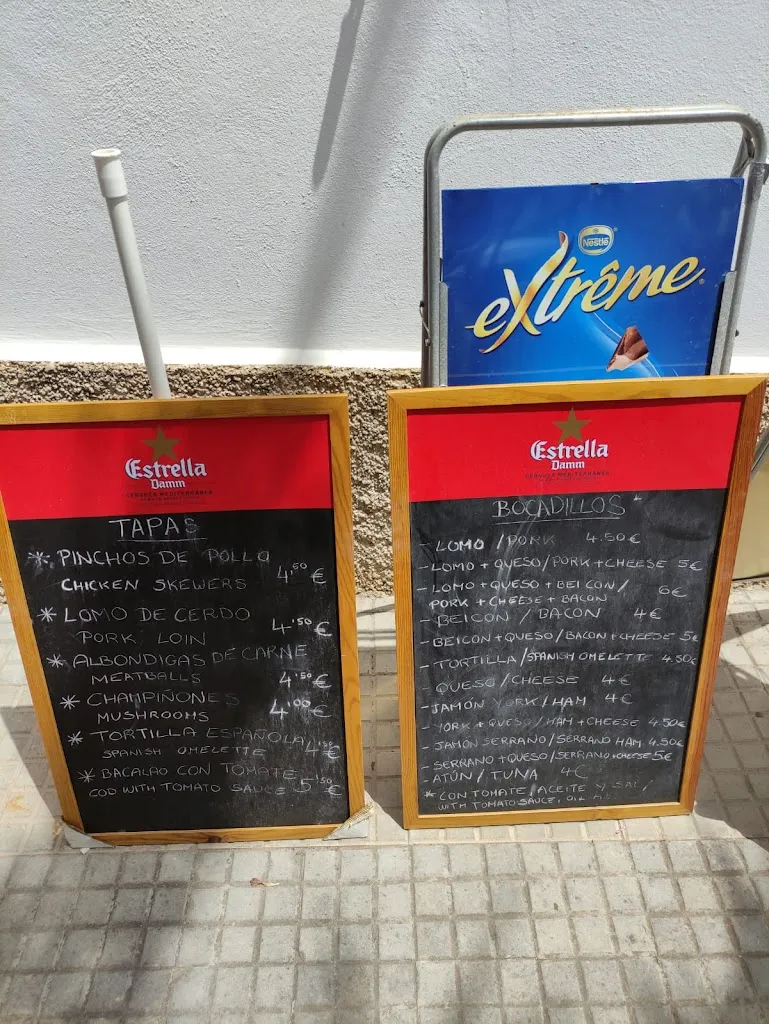 Nestlé
extrême
Estrella
Damm
CERVEZA MEDITERRÁNEA
TAPAS
* PINCHOS DE POLLO
CHICKEN SKEWERS 4'50 €
* LOMO DE CERDO
PORK LOIN 4'50 €
* ALBONDIGAS DE CARNE
MEATBALLS 4'50 €
* CHAMPIÑONES
MUSHROOMS 4'00 €
* TORTILLA ESPAÑOLA
SPANISH OMELETTE 4'50 €
* BACALAO CON TOMATE
COD WITH TOMATO SAUCE 5'50 €
Estrella
Damm
CERVEZA MEDITERRÁNEA
BOCADILLOS *
- LOMO / PORK 4.50€
- LOMO + QUESO / PORK + CHEESE 5€
- LOMO + QUESO + BEICON /
PORK + CHEESE + BACON 6€
- BEICON / BACON 4€
- BEICON + QUESO / BACON + CHEESE 5€
- TORTILLA / SPANISH OMELETTE 4.50€
- QUESO / CHEESE 4€
- JAMÓN YORK / HAM 4€
- YORK + QUESO / HAM + CHEESE 4.50€
- JAMÓN SERRANO / SERRANO HAM 4.50€
- SERRANO + QUESO / SERRANO + CHEESE 5€
- ATÚN / TUNA 4€
* CON TOMATE / ACEITE Y SAL /
WITH TOMATO SAUCE, OIL